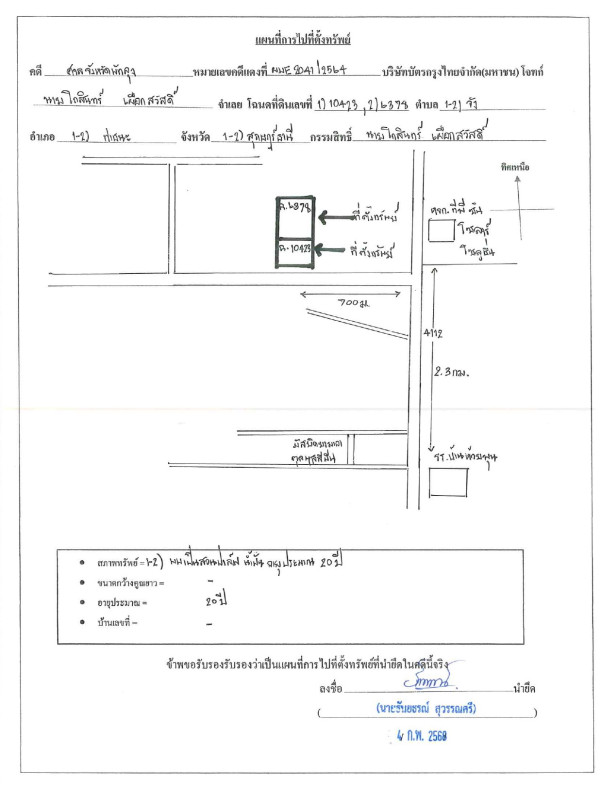 แผนที่การไปที่ตั้งทรัพย์
คดี ศาลจังหวัดพัทลุง หมายเลขคดีแดงที่ ผบE2041/2564 บริษัทบัตรกรุงไทยจำกัด(มหาชน) โจทก์
นายโกสินทร์ เผือกสวัสดิ์ จำเลย โฉนดที่ดินเลขที่ 1) 10423 , 2) 6378 ตำบล 1-2) วัง
อำเภอ 1-2) ท่าชนะ จังหวัด 1-2) สุราษฎร์ธานี กรรมสิทธิ์ นายโกสินทร์ เผือกสวัสดิ์
ทิศเหนือ
ฉ.6378
ที่ตั้งทรัพย์
ฉ.10423
ที่ตั้งทรัพย์
หจก. ที.พี.ซัน
โซลาร์
โซลูชั่น
700 ม.
4112
2.3 กม.
มัสยิด
รร.บ้าน
สภาพทรัพย์ = 1-2) เป็นสวนปาล์ม น้ำมัน อายุประมาณ 20 ปี
ขนาดกว้างคูณยาว = -
อายุประมาณ = 20 ปี
บ้านเลขที่ - -
ข้าพขอรับรองรับรองว่าเป็นแผนที่การไปที่ตั้งทรัพย์ที่นำยึดในคดีนี้จริง
ลงชื่อ นำยึด
(นายธันยธรณ์ สุวรรณศรี)
4 ก.พ. 2568